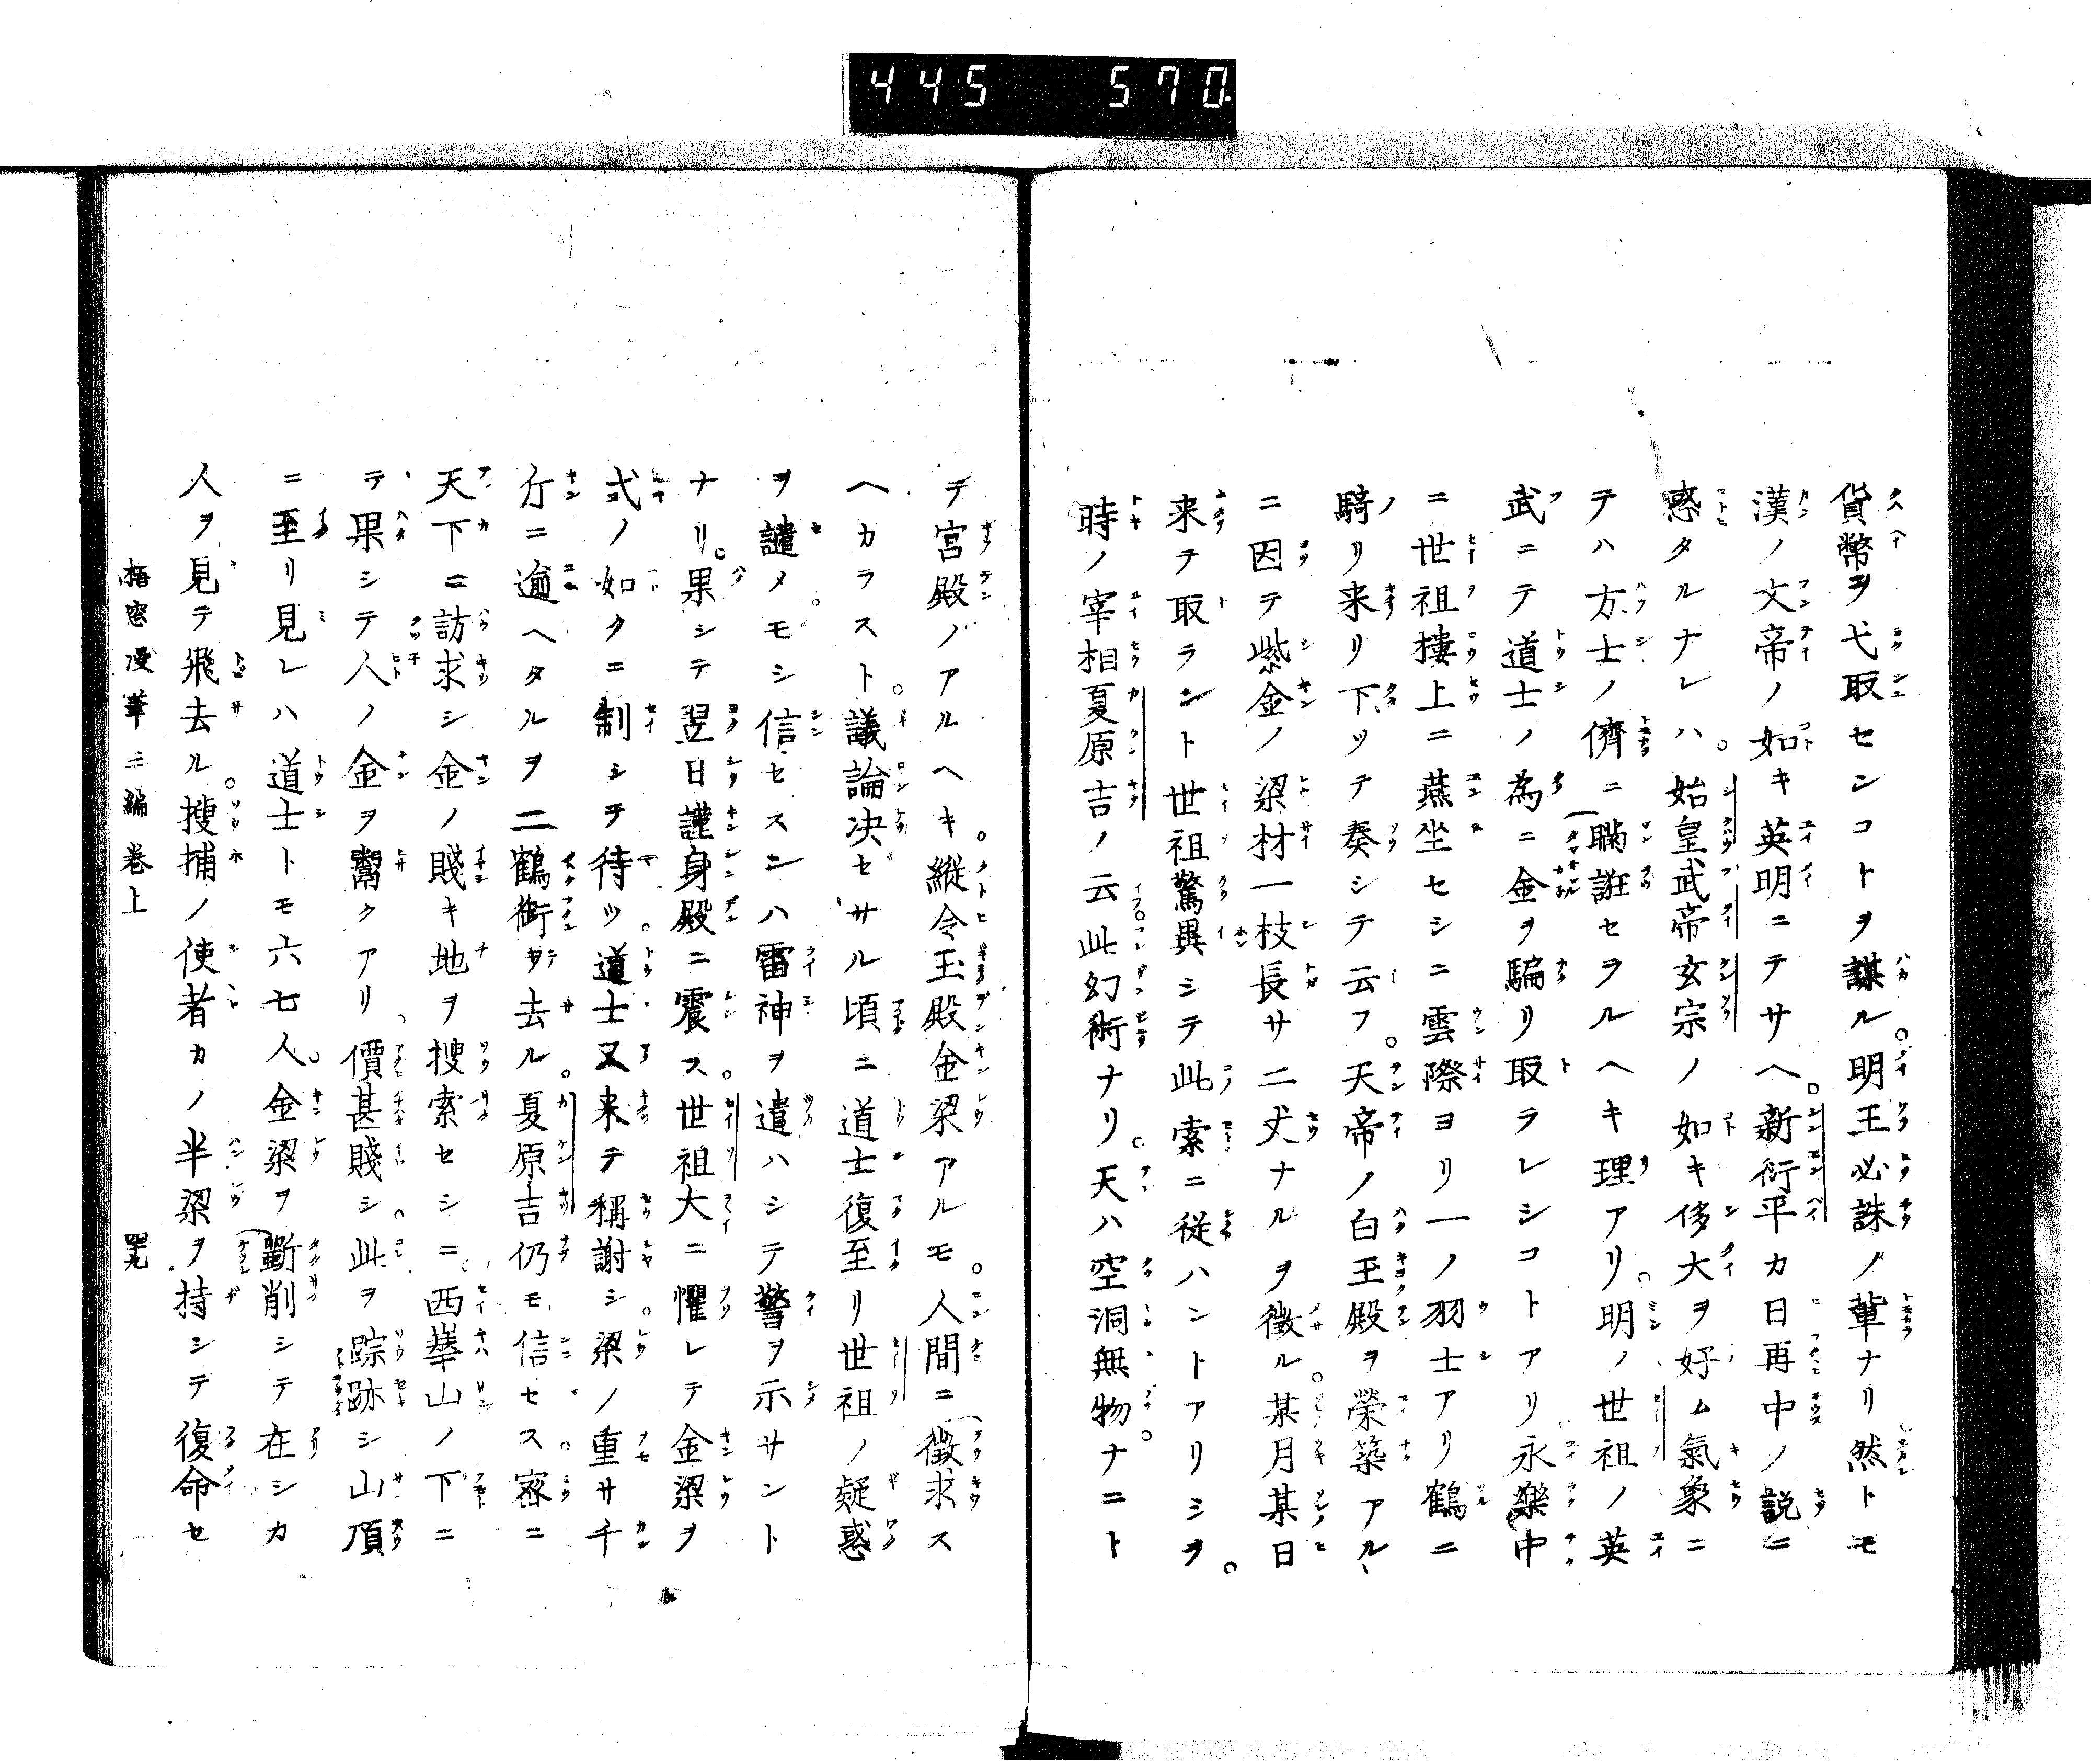 445 570
貨幣ヲ弋取センコトヲ謀ル。明王必誅ノ輩ナリ然トモ
漢ノ文帝ノ如キ英明ニテサヘ。新衍平カ日再中ノ説ニ
惑タルナレハ。始皇武帝玄宗ノ如キ侈大ヲ好ム氣象ニ
テハ方士ノ儕ニ瞞誑セヲルヘキ理アリ。明ノ世祖ノ英
武ニテ道士ノ為ニ金ヲ騙リ取ラレシコトアリ永樂中
ニ世祖樓上ニ燕坐セシニ雲際ヨリ一ノ羽士アリ鶴ニ
騎リ来リ下ツテ奏シテ云フ。天帝ノ白玉殿ヲ榮築アル
ニ因テ紫金ノ梁材一枝長サ二丈ナルヲ徴ル。某月某日
来テ取ラント世祖驚異シテ此索ニ従ハントアリシヲ。
時ノ宰相夏原吉ノ云此幻術ナリ。天ハ空洞無物。ナニト
テ宮殿ノアルヘキ。縦令玉殿金梁アルモ。人間ニ徴求ス
ヘカラスト。議論決セサル頃ニ道士復至リ世祖ノ疑惑
ヲ譴メ。モシ信セスンハ雷神ヲ遣ハシテ警ヲ示サント
ナリ。果シテ翌日謹身殿ニ震ス。世祖大ニ懼レテ金梁ヲ
式ノ如クニ制シテ待ツ。道士又来テ稱謝シ。梁ノ重サ千
斤ニ逾ヘタルヲ二鶴銜テ去ル。夏原吉仍モ信セス。密ニ
天下ニ訪求シ金ノ賤キ地ヲ搜索セシニ。西華山ノ下ニ
テ果シテ人ノ金ヲ鬻クアリ。價甚賤シ。此ヲ踪跡シ山頂
ニ至リ見レハ道士トモ六七人。金梁ヲ斷削シテ在シカ
人ヲ見テ飛去ル。搜捕ノ使者カノ半梁ヲ持シテ復命セ
梧窓漫筆三編巻上 四十九